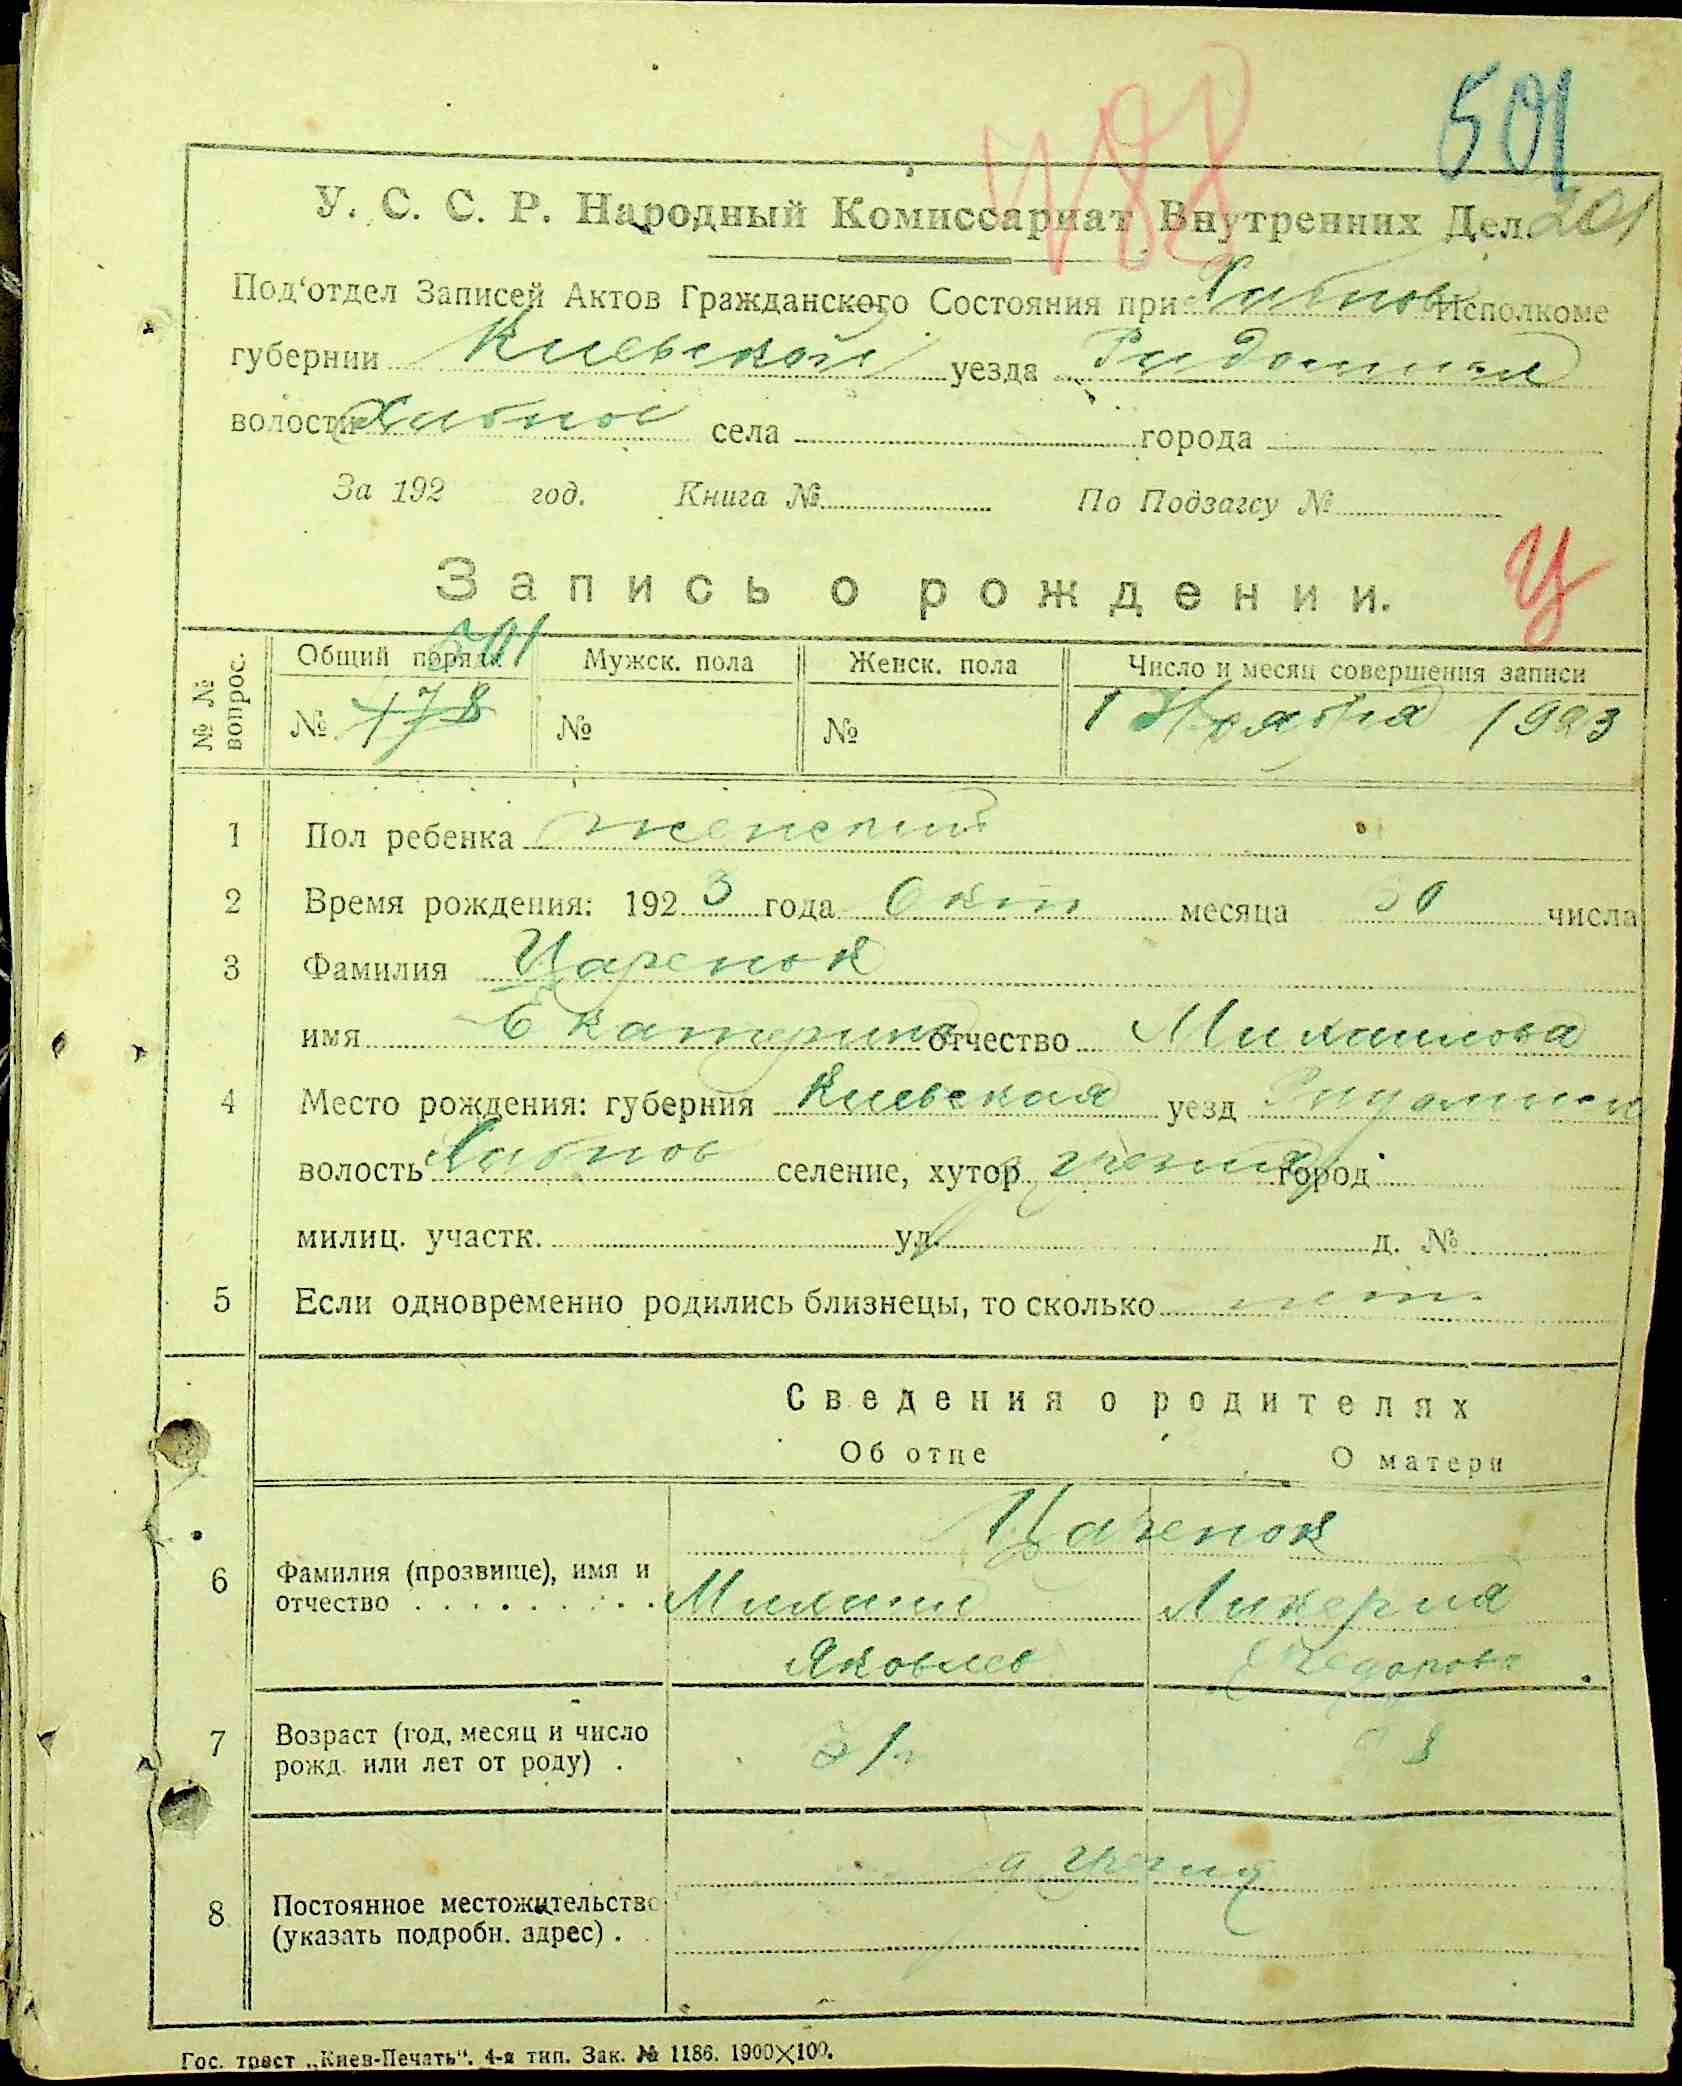 501
488
201
У. С. С. Р. Народный Комиссариат Внутренних Дел.
Под'отдел Записей Актов Гражданского Состояния при Хабнов Исполкоме
губернии Киевской уезда
волости Хабное села города
За 192 год. Книга № По Подзагсу №
Запись о рождении.
Ц
№ № вопрос.
Общий порядк. Мужск. пола Женск. пола Число и месяц совершения записи
501
№ 478 № № 1 Ноября 1923
1 Пол ребенка женский
2 Время рождения: 1923 года Окт месяца 30 числа
3 Фамилия Царенок
имя Екатерина отчество Михаилова
4 Место рождения: губерния Киевская уезд
волость Хабнов селение, хутор город
милиц. участк. ул. д. №
5 Если одновременно родились близнецы, то сколько нет
Сведения о родителях
Об отце О матери
Царенок
6 Фамилия (прозвище), имя и отчество Михаил Ликерия
Яковлев Федорова
7 Возраст (год, месяц и число рожд. или лет от роду) 31
8 Постоянное местожительство
(указать подробн. адрес)
Гос. трест „Киев-Печать“. 4-я тип. Зак. № 1186. 1900×100.